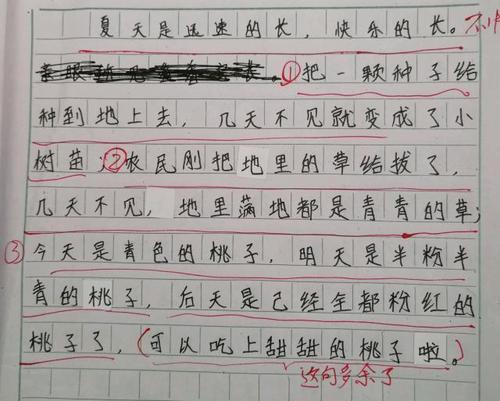 夏天是迅速的长，快乐的长。
①把一颗种子给
种到地上去，几天不见就变成了小
树苗；②农民刚把地里的草给拔了，
几天不见，地里满地都是青青的草；
③今天是青色的桃子，明天是半粉半
青的桃子，后天是已经全都粉红的
桃子了，（可以吃上甜甜的桃子啦。）
这句多余了